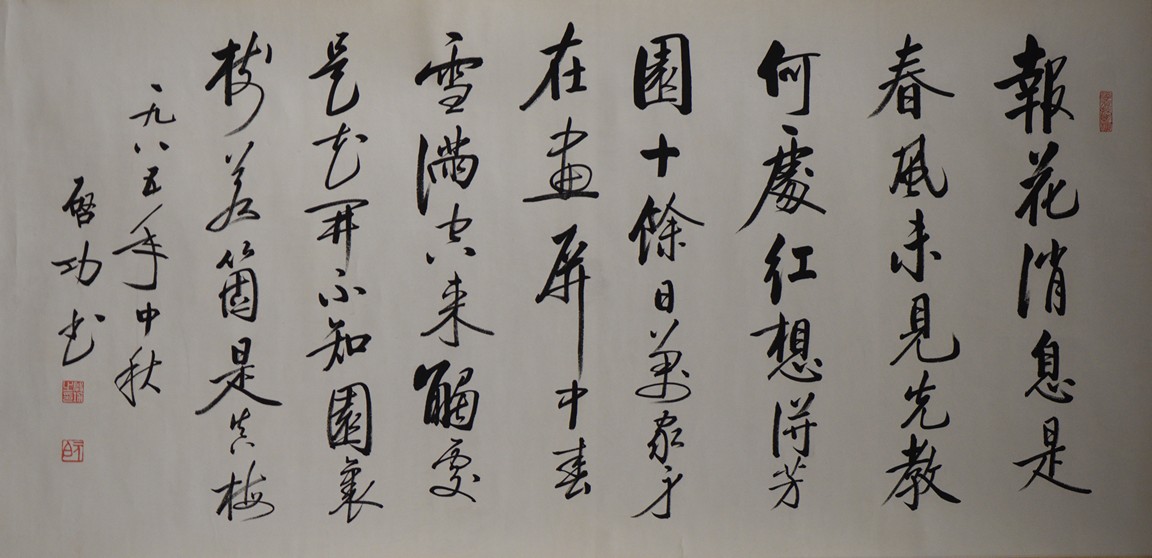 報花消息是
春風未見先教
何處紅想得芳
園十餘日萬家身
在畫屏中春
雪滿空來觸處
是花開不知園裏
樹若箇是真梅
一九八五年中秋
啓功書